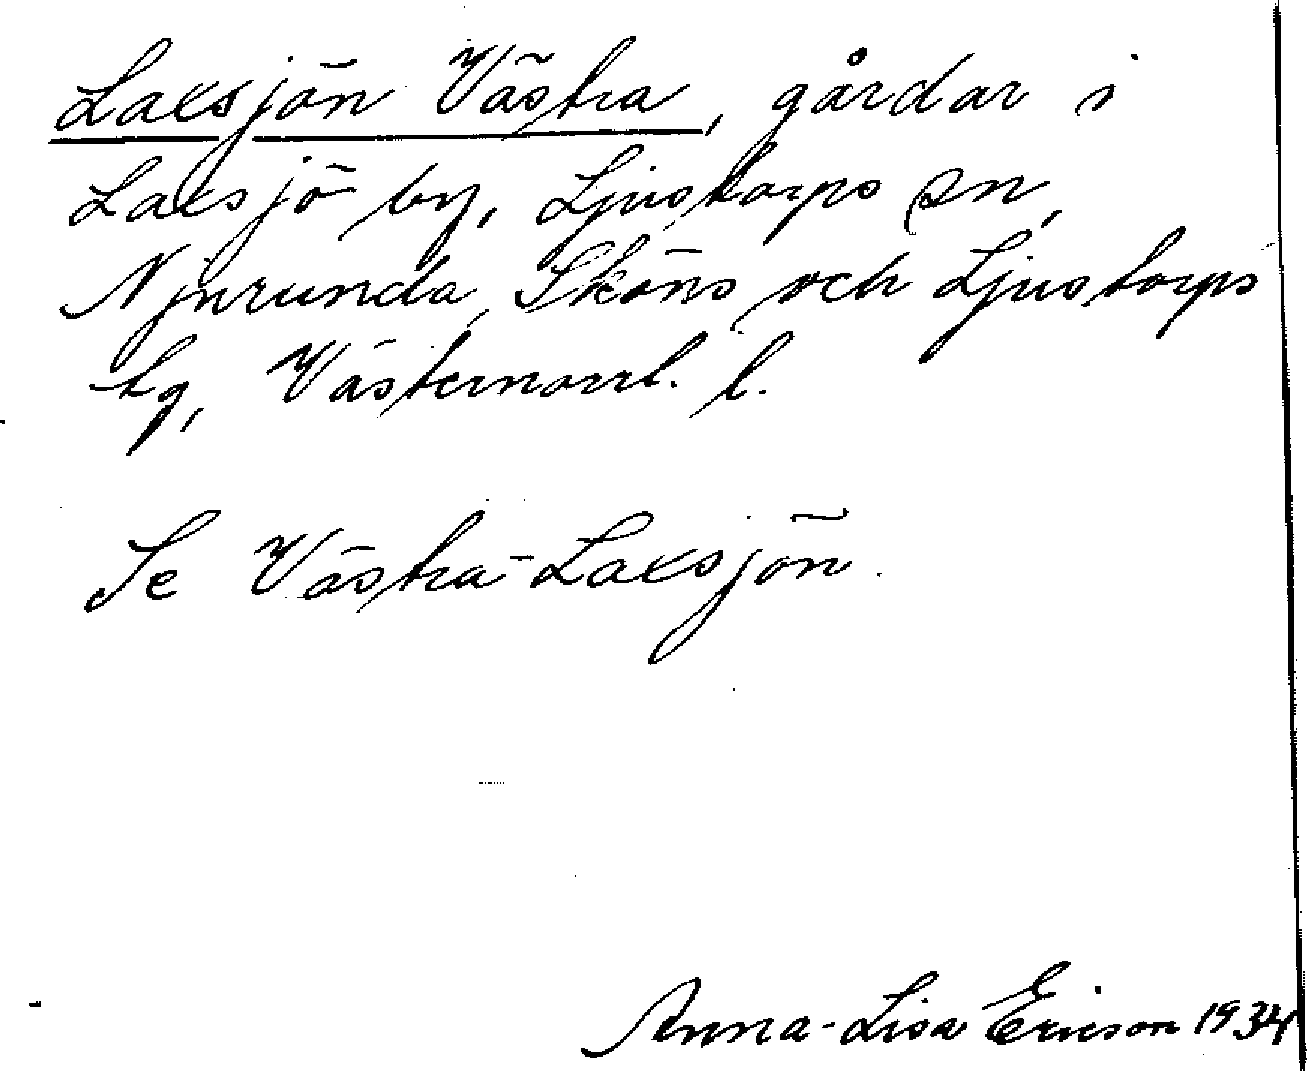 Laxsjön Västra, gårdar i
Laxsjö by, Ljustorps sn,
Njurunda, Sköns och Ljustorps
tg, Västernorrl. l.
Se Västra-Laxsjön.
Anna-Lisa Ericson 1934